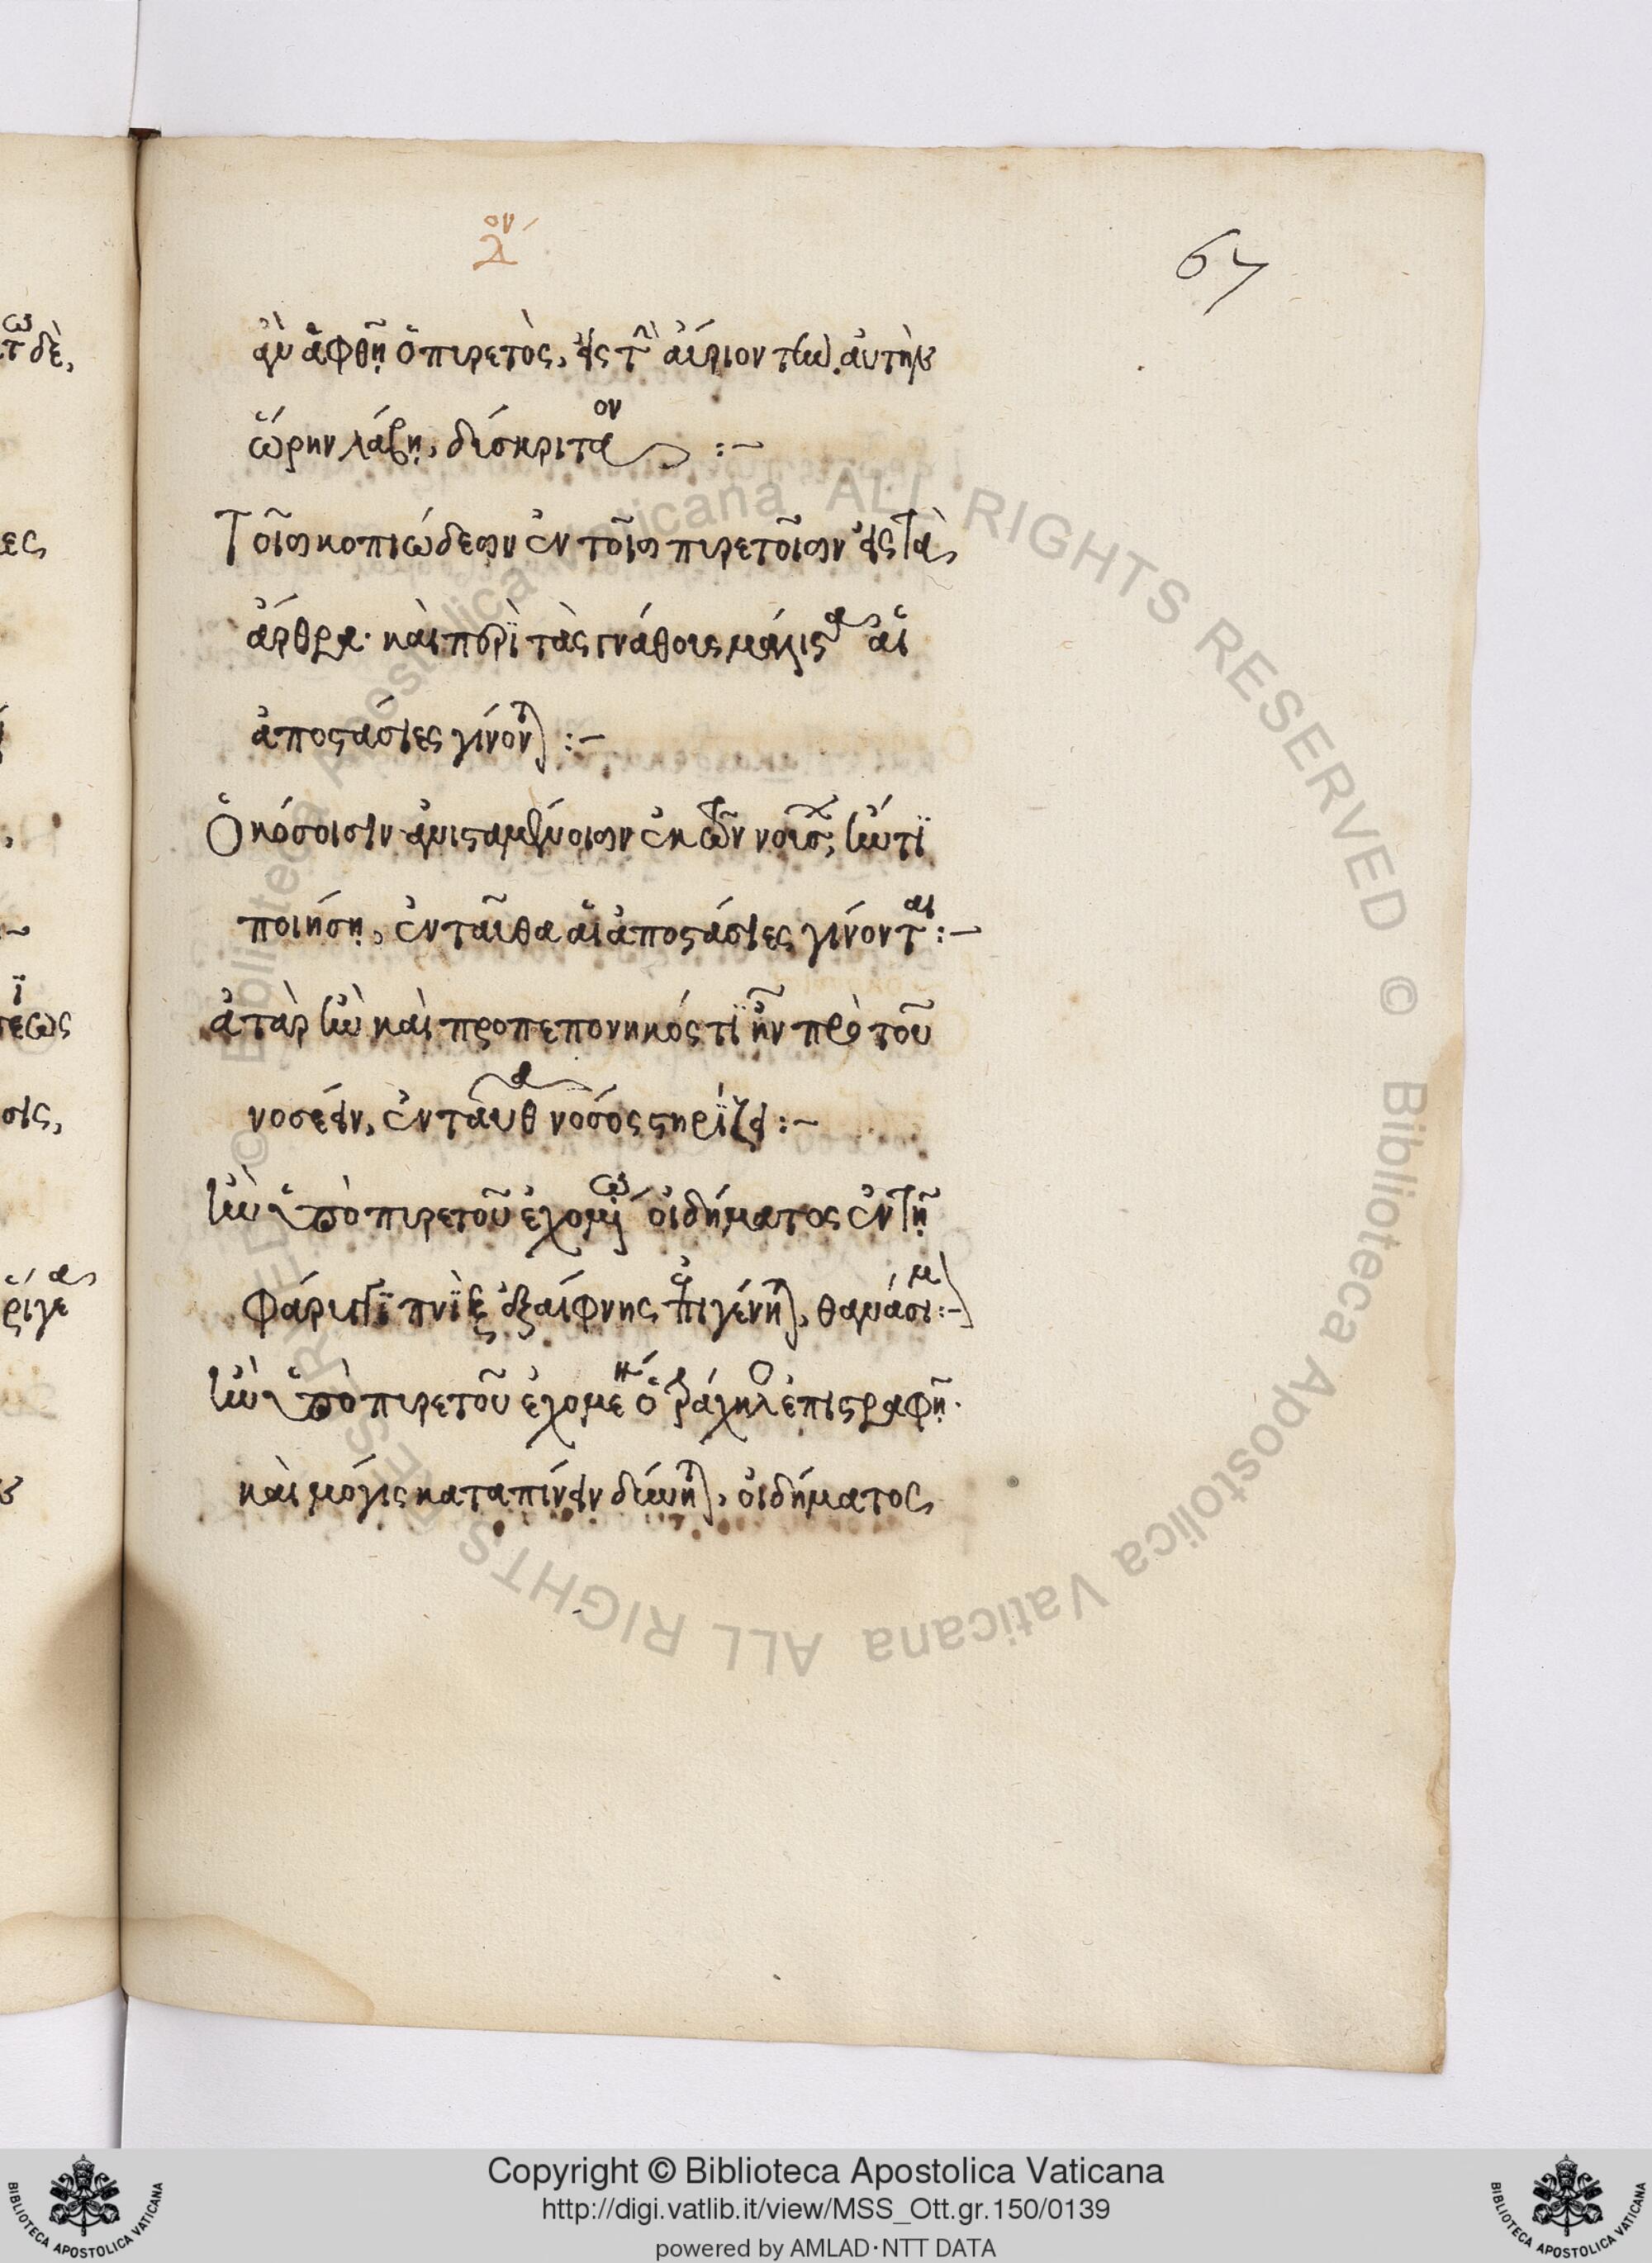 λον
67
ἂν ἀφθῇ ὁ πυρετὸς, εἰς τὴν αὔριον τὴν αὐτὴν
ὥρην λάβῃ, δύσκριτον :~
Τοῖσι κοπιώδεσιν ἐν τοῖσι πυρετοῖσιν εἰς τὰ
ἄρθρα· καὶ περὶ τὰς γνάθους μάλιστα αἱ
ἀποστάσιες γίνονται :~
Ὁκόσοισιν ἀνισταμένοισιν ἐκ τῶν νούσων, ἤν τι
ποιήσῃ, ἐνταῦθα αἱ ἀποστάσιες γίνονται :~
ἀτὰρ ἢν καὶ προπεπονηκός τι ἦν πρὸ τοῦ
νοσέειν, ἐνταῦθα νόσος στηρίζει :~
ἢν ὑπὸ πυρετοῦ ἐχομένω οἰδήματος ἐν τῇ
φάρυγγι πνὶξ ἐξαίφνης ἐπιγένηται, θανάσιμ :~
ἢν ὑπὸ πυρετοῦ ἐχομένω ὁ τράχηλος ἐπιστραφῇ·
καὶ μόγις καταπίνειν δύνηται, οἰδήματος
Copyright © Biblioteca Apostolica Vaticana
http://digi.vatlib.it/view/MSS_Ott.gr.150/0139
powered by AMLAD·NTT DATA